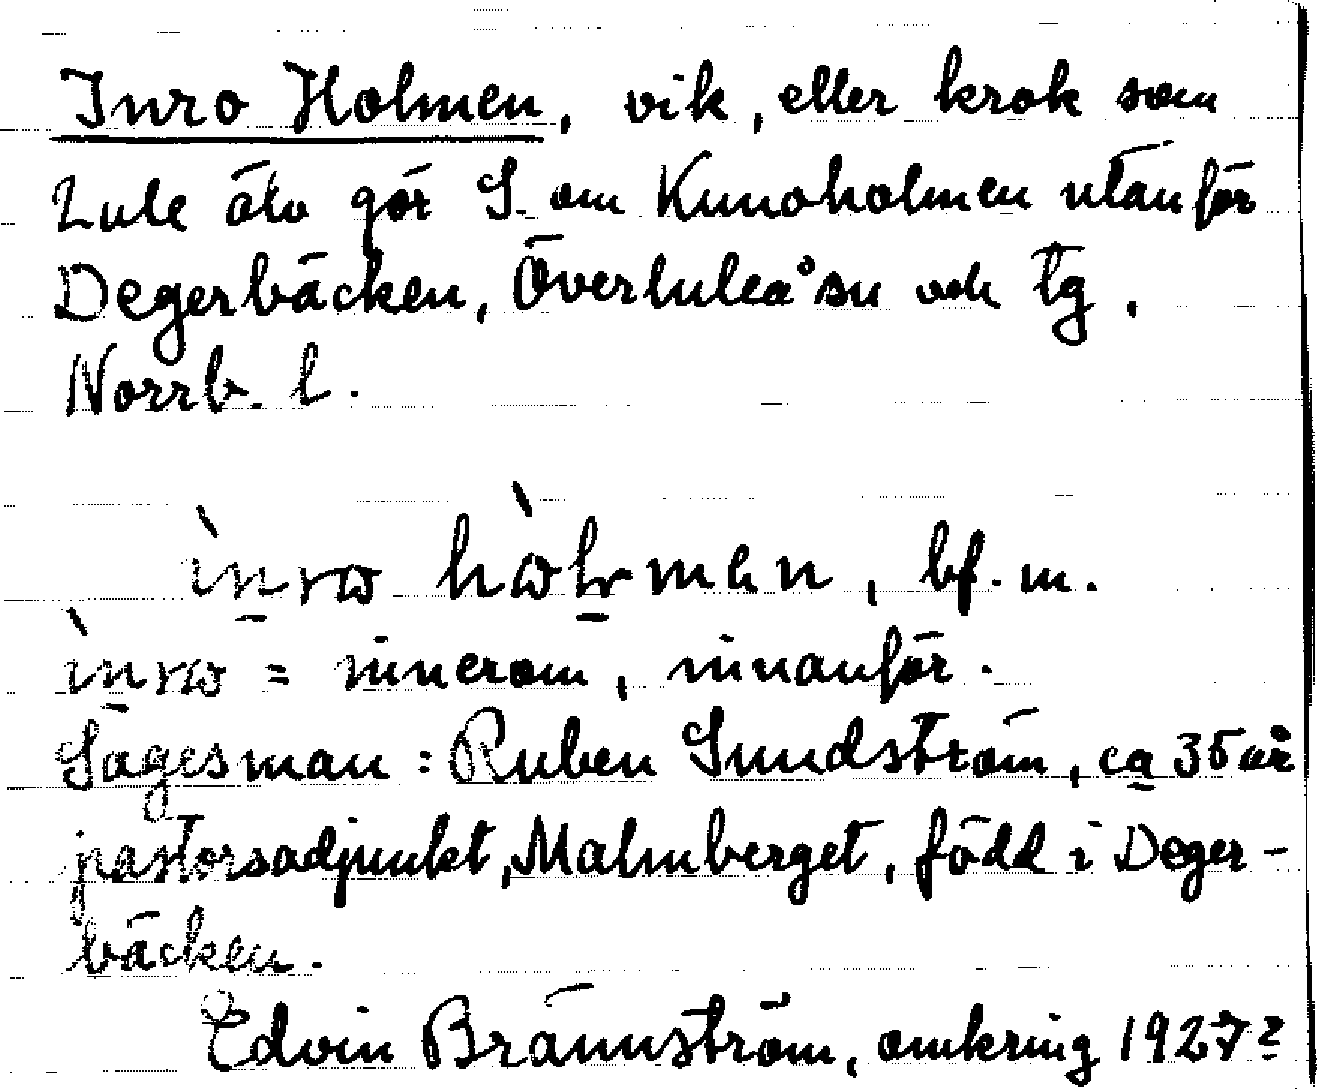 Inro Holmen, vik, eller krok som
Lule älv gör S. om Kunoholmen utanför
Degerbäcken, Överluleå sn och tg.
Norrb. l.
ìnrω hὼlmen, bf. m.
ìnrω = innerom, innanför.
Sagesman: Ruben Sundström, ca 35 år
pastorsadjunkt, Malmberget, född i Deger-
bäcken.
Edvin Brännström, omkring 1927?